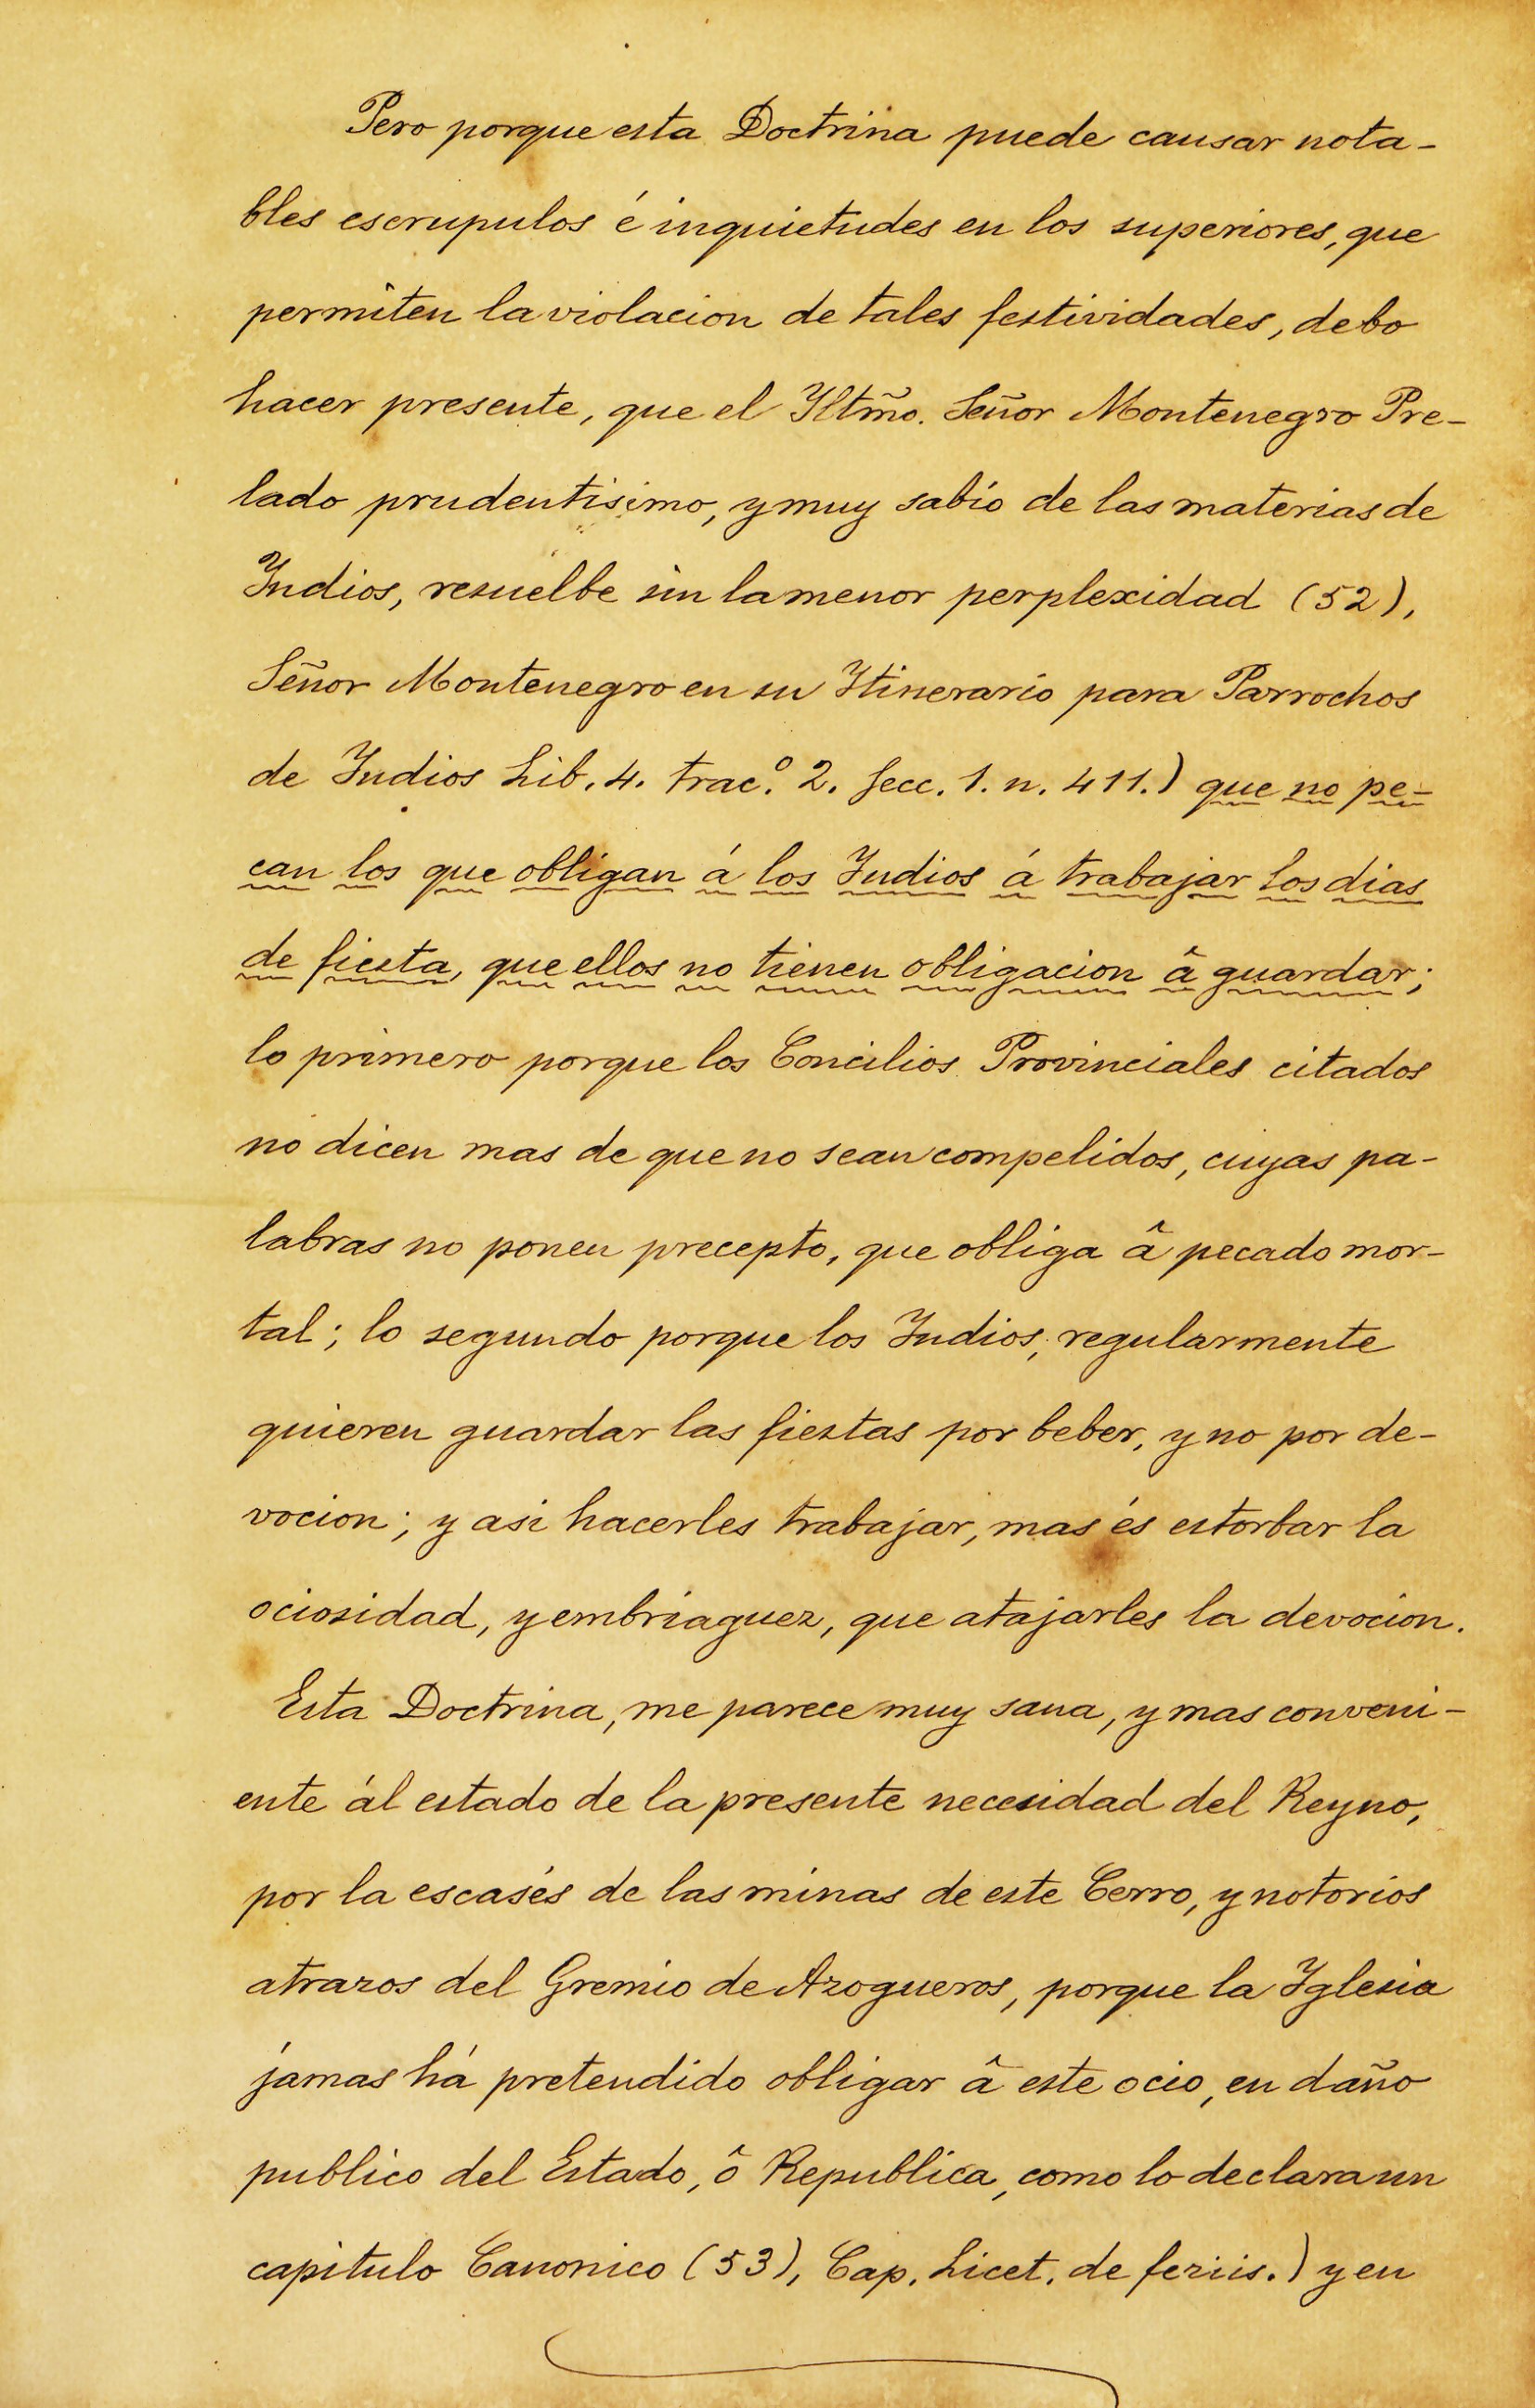 Pero porque esta Doctrina puede causar nota-
bles escrupulos é inquietudes en los superiores, que
permiten la violacion de tales festividades, debo
hacer presente, que el Yltm̃o. Señor Montenegro Pre-
lado prudentisimo, y muy sabio de las materias de
Yndios, resuelbe sin la menor perplexidad (52),
Señor Montenegro en su Ytinerario para Parrochos
de Yndios Lib. 4. trac.º 2. Secc. 1. n. 411.) que no pe-
can los que obligan á los Yndios á trabajar los dias
de fiesta, que ellos no tienen obligacion â guardar;
lo primero porque los Concilios Provinciales citados
no dicen mas de que no sean compelidos, cuyas pa-
labras no ponen precepto, que obliga â pecado mor-
tal; lo segundo porque los Yndios, regularmente
quieren guardar las fiestas por beber, y no por de-
vocion; y asi hacerles trabajar, mas és estorbar la
ociosidad, y embriaguez, que atajarles la devocion.
Esta Doctrina, me parece muy sana, y mas conveni-
ente ál estado de la presente necesidad del Reyno,
por la escasés de las minas de este Cerro, y notorios
atrazos del Gremio de Azogueros, porque la Yglesia
jamas há pretendido obligar â este ocio, en daño
publico del Estado, ô Republica, como lo declara un
capitulo Canonico (53), Cap. Licet. de feriis.) y en